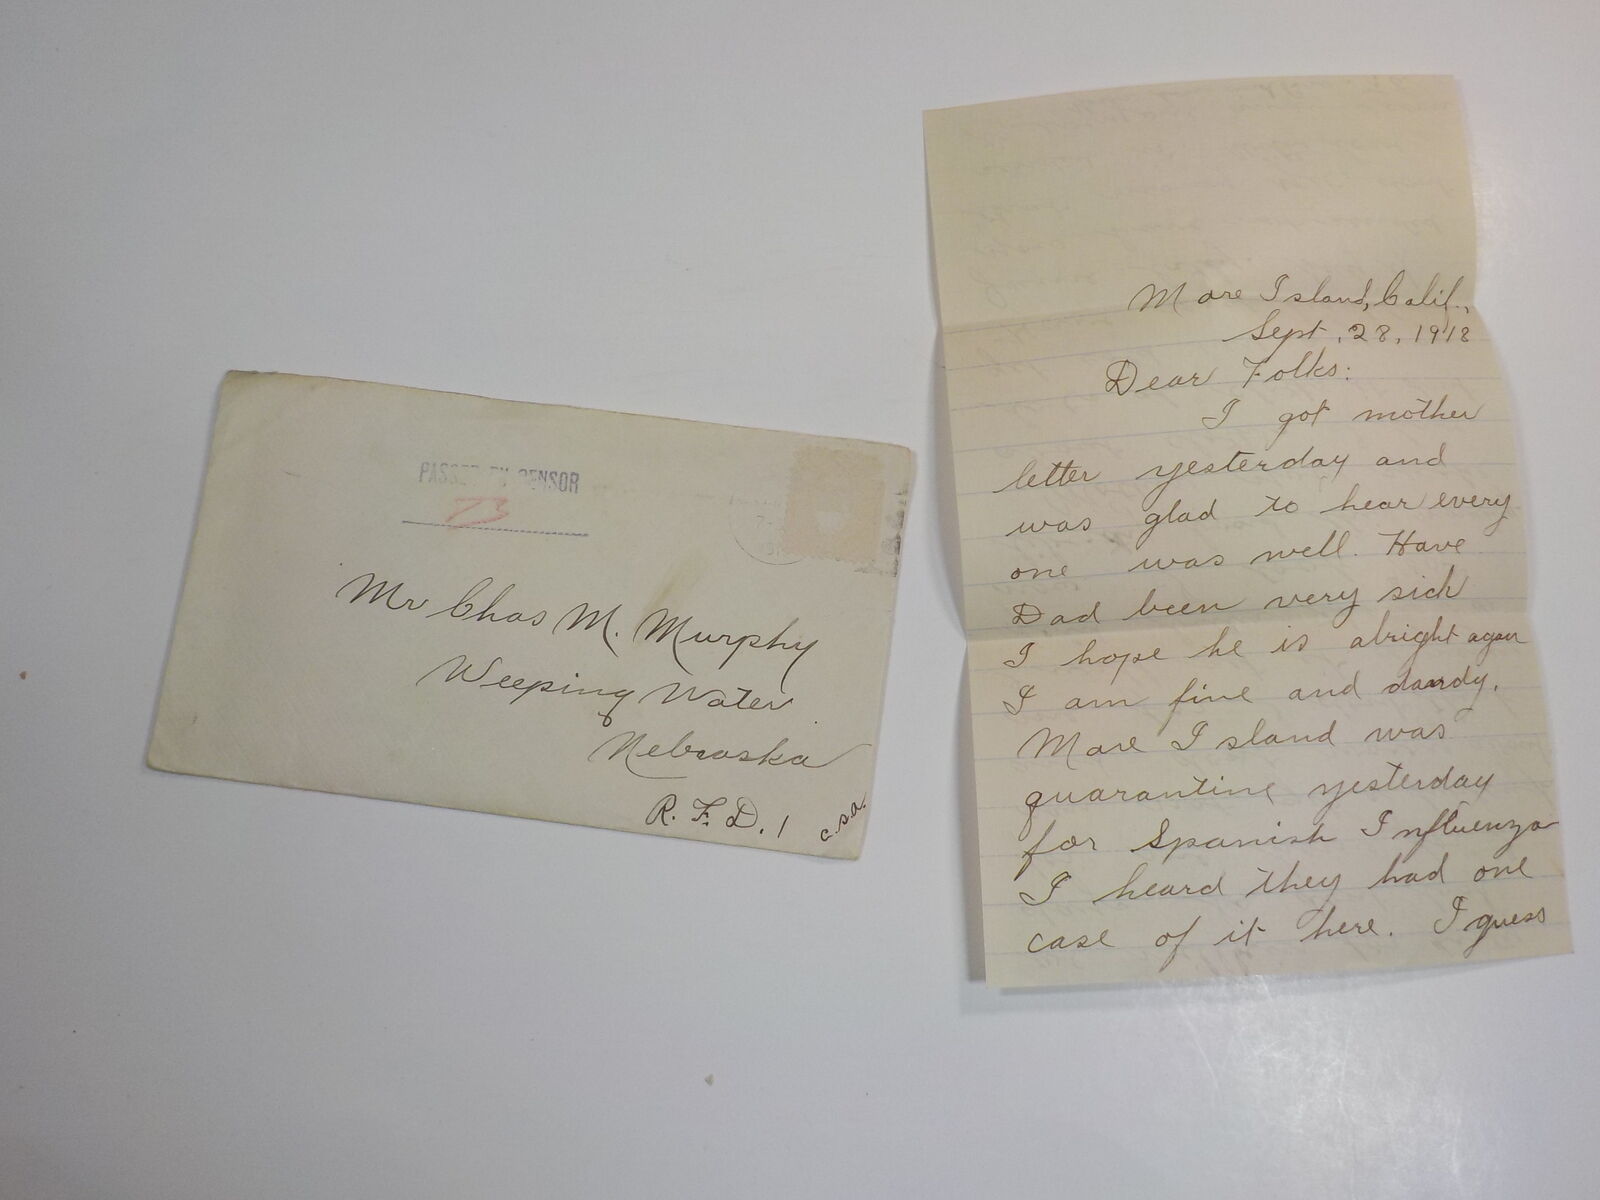 PASSED BY CENSOR
73
Mr Chas M. Murphy
Weeping Water
Nebraska
R. F. D. 1
Mare Island, Calif.,
Sept. 28, 1918
Dear Folks:
I got mother
letter yesterday and
was glad to hear every
one was well. Have
Dad been very sick
I hope he is alright again
I am fine and dandy.
Mare Island was
quarantine yesterday
for Spanish Influenza
I heard they had one
case of it here. I guess